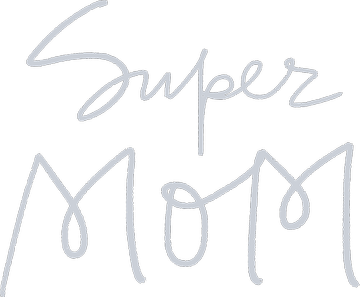 Super
MOM